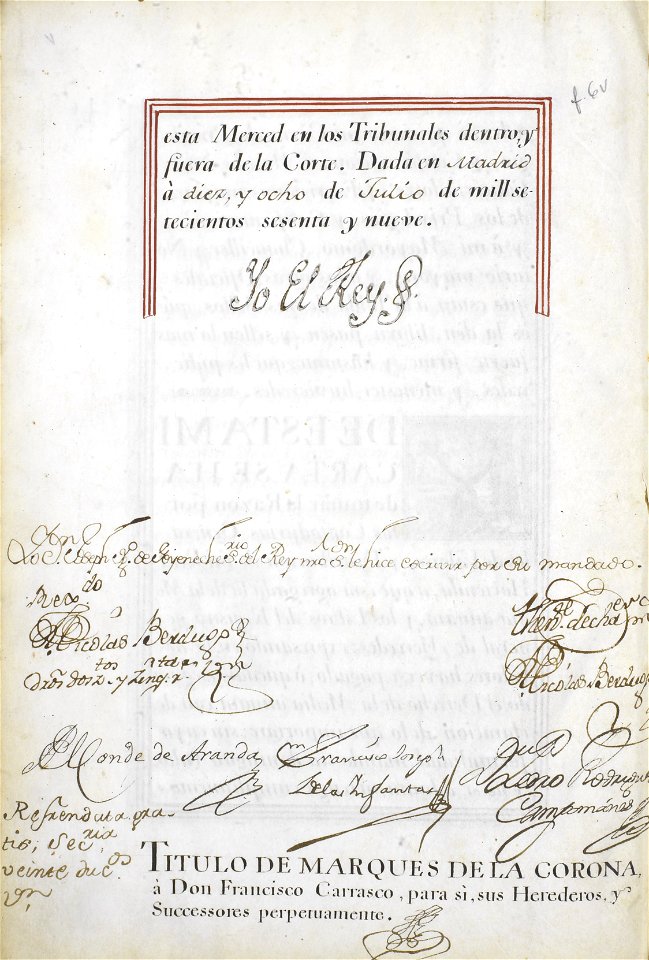 f 6v
esta Merced en los Tribunales dentro, y
fuera de la Corte. Dada en Madrid
à diez, y ocho de Julio de mill se-
tecientos sesenta y nueve.
Yo El Rey.
Yo Dn Joseph Ign. de Goyeneche Srio del Rey nro Sr. le hice escrivir por su mandado.
Regdo
Nicolas Berdugo
Dros dos ts. y
Then.te de
Nicolas Berdugo
El Conde de Aranda
Dn Francisco Joseph
de las Infantas
Dn Pedro Rodrigz
Campomanes
Refrendata gra-
tis, Secria
veinte duc.os
TITULO DE MARQUES DE LA CORONA,
à Don Francisco Carrasco, para sì, sus Herederos, y
Successores perpetuamente.